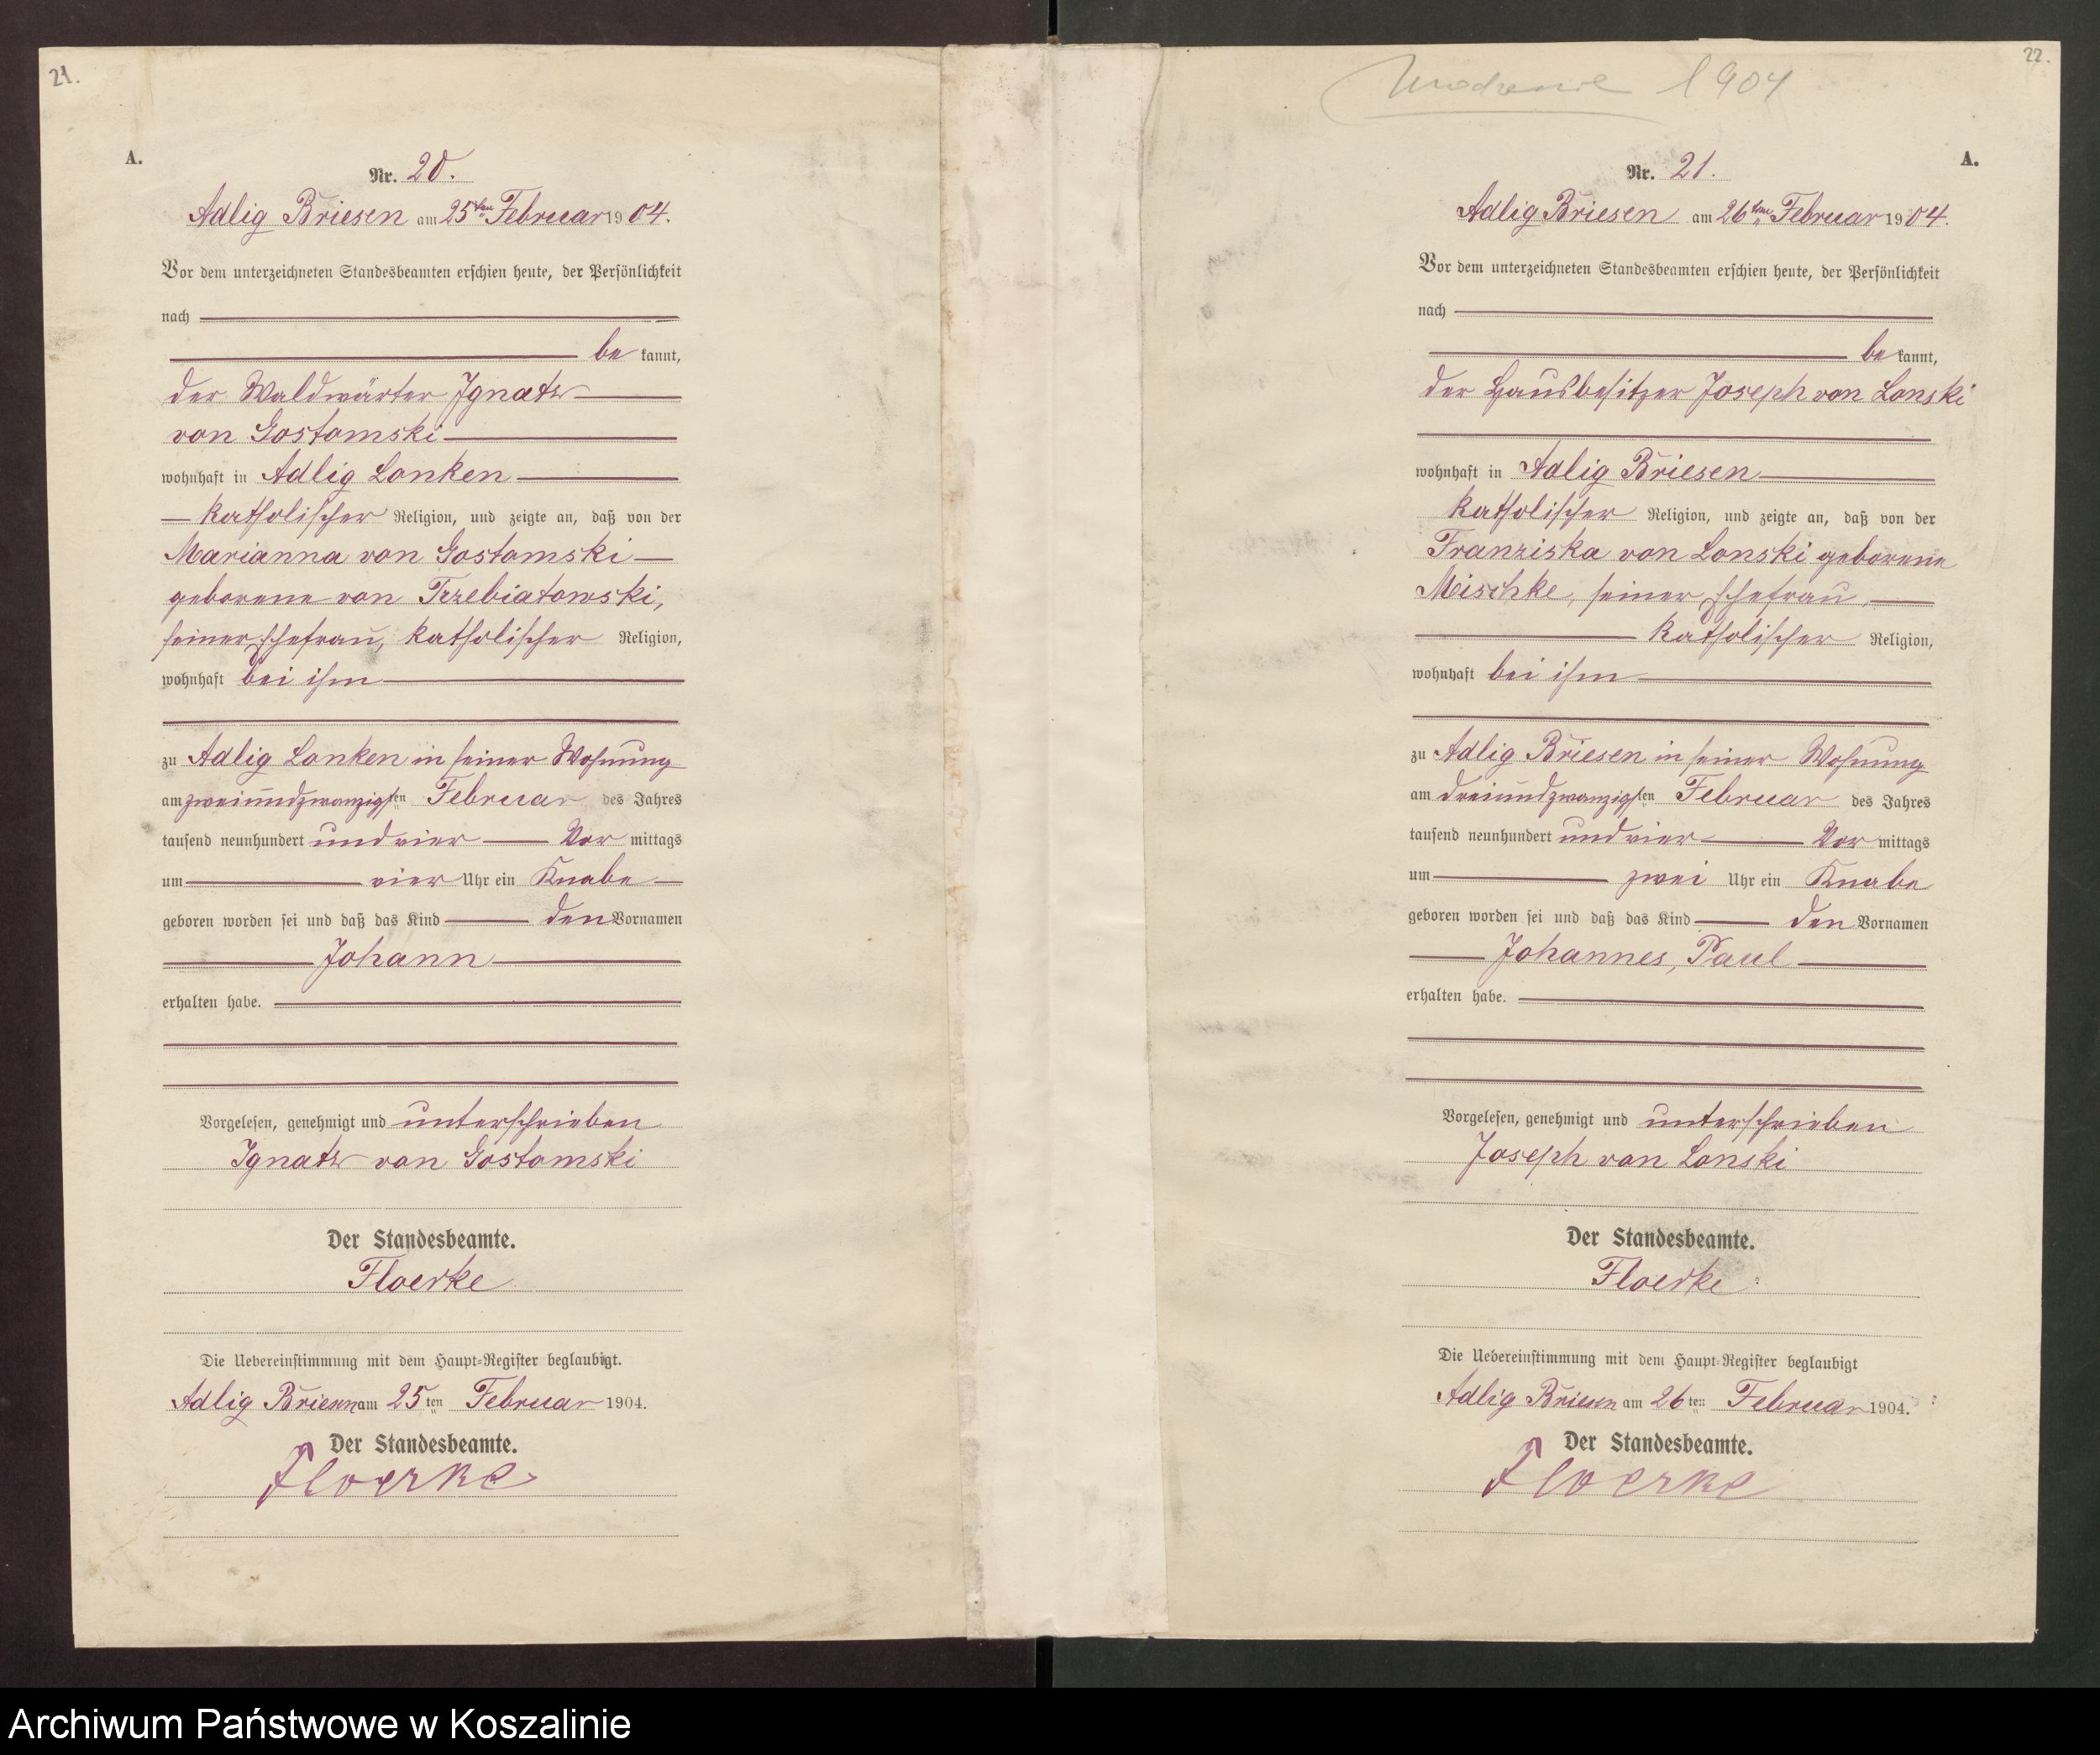 21.
A.
Nr. 20.
Adlig Briesen am 25ten Februar 1904.
Vor dem unterzeichneten Standesbeamten erschien heute, der Persönlichkeit
nach
be kannt,
der Waldwärter Ignatz
von Gostomski
wohnhaft in Adlig Lonken
katholischer Religion, und zeigte an, daß von der
Marianna von Gostomski
geborene von Trzebiatowski,
seiner Ehefrau, katholischer Religion,
wohnhaft bei ihm
zu Adlig Lonken in seiner Wohnung
am zweiundzwanzigsten Februar des Jahres
tausend neunhundert und vier Vor mittags
um vier Uhr ein Knabe
geboren worden sei und daß das Kind den Vornamen
Johann
erhalten habe.
Vorgelesen, genehmigt und unterschrieben
Ignatz von Gostomski
Der Standesbeamte.
Floerke
Die Uebereinstimmung mit dem Haupt-Register beglaubigt.
Adlig Briesen am 25ten Februar 1904.
Der Standesbeamte.
Floerke
22.
1904
A.
Nr. 21.
Adlig Briesen am 26ten Februar 1904.
Vor dem unterzeichneten Standesbeamten erschien heute, der Persönlichkeit
nach
be kannt,
der Hausbesitzer Joseph von Lonski
wohnhaft in Adlig Briesen
katholischer Religion, und zeigte an, daß von der
Franziska von Lonski geborene
Mischke, seiner Ehefrau,
katholischer Religion,
wohnhaft bei ihm
zu Adlig Briesen in seiner Wohnung
am dreiundzwanzigsten Februar des Jahres
tausend neunhundert und vier Vor mittags
um zwei Uhr ein Knabe
geboren worden sei und daß das Kind den Vornamen
Johannes, Paul
erhalten habe.
Vorgelesen, genehmigt und unterschrieben
Joseph von Lonski
Der Standesbeamte.
Floerke
Die Uebereinstimmung mit dem Haupt-Register beglaubigt
Adlig Briesen am 26ten Februar 1904.
Der Standesbeamte.
Floerke
Archiwum Państwowe w Koszalinie